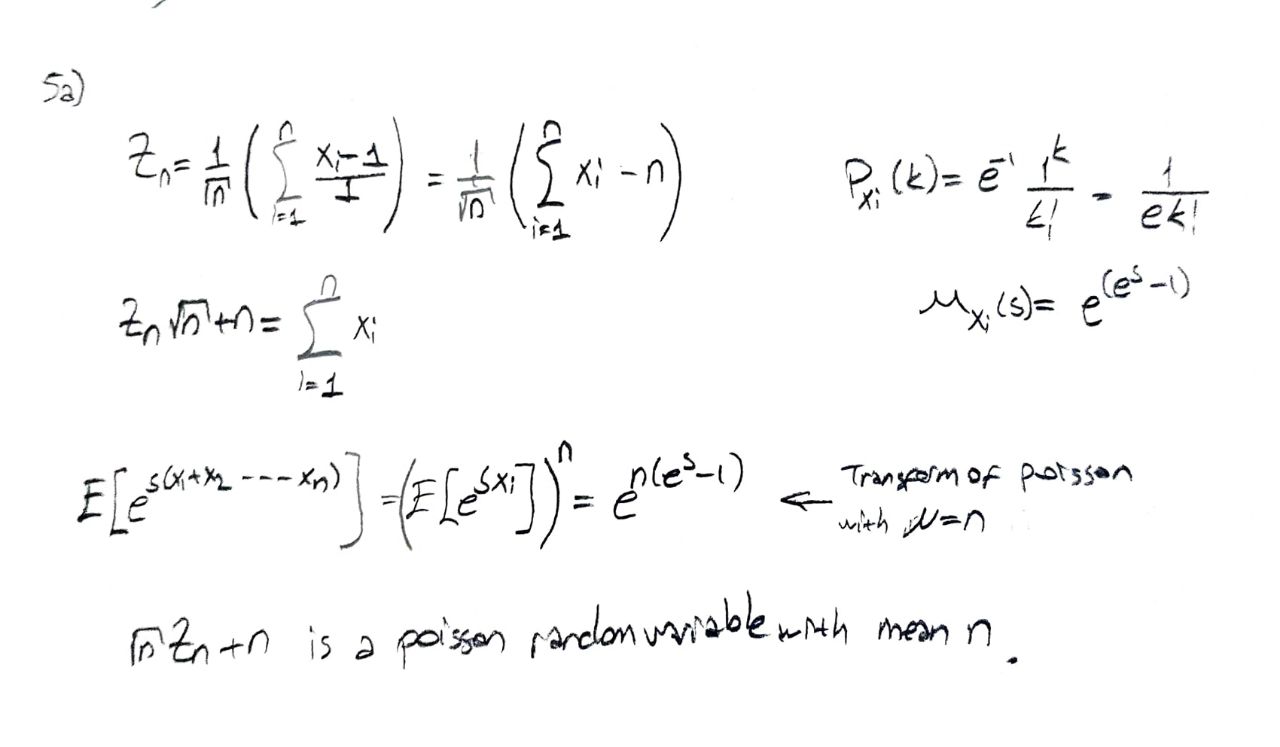 5a)
Zₙ = 1/√n (∑ᵢ₌₁ⁿ (xᵢ-1)/1) = 1/√n (∑ᵢ₌₁ⁿ xᵢ - n)
P_{xᵢ}(k) = e⁻¹ 1ᵏ/k! - 1/ek!
Zₙ √n + n = ∑ᵢ₌₁ⁿ xᵢ
M_{xᵢ}(s) = e^{(e^s - 1)}
E[e^{s(x₁+x₂ ---- xₙ)}] = (E[e^{sxᵢ}])ⁿ = e^{n(e^s-1)} ← Transform of poisson
with μ=n
√n Zₙ + n is a poisson random variable with mean n.